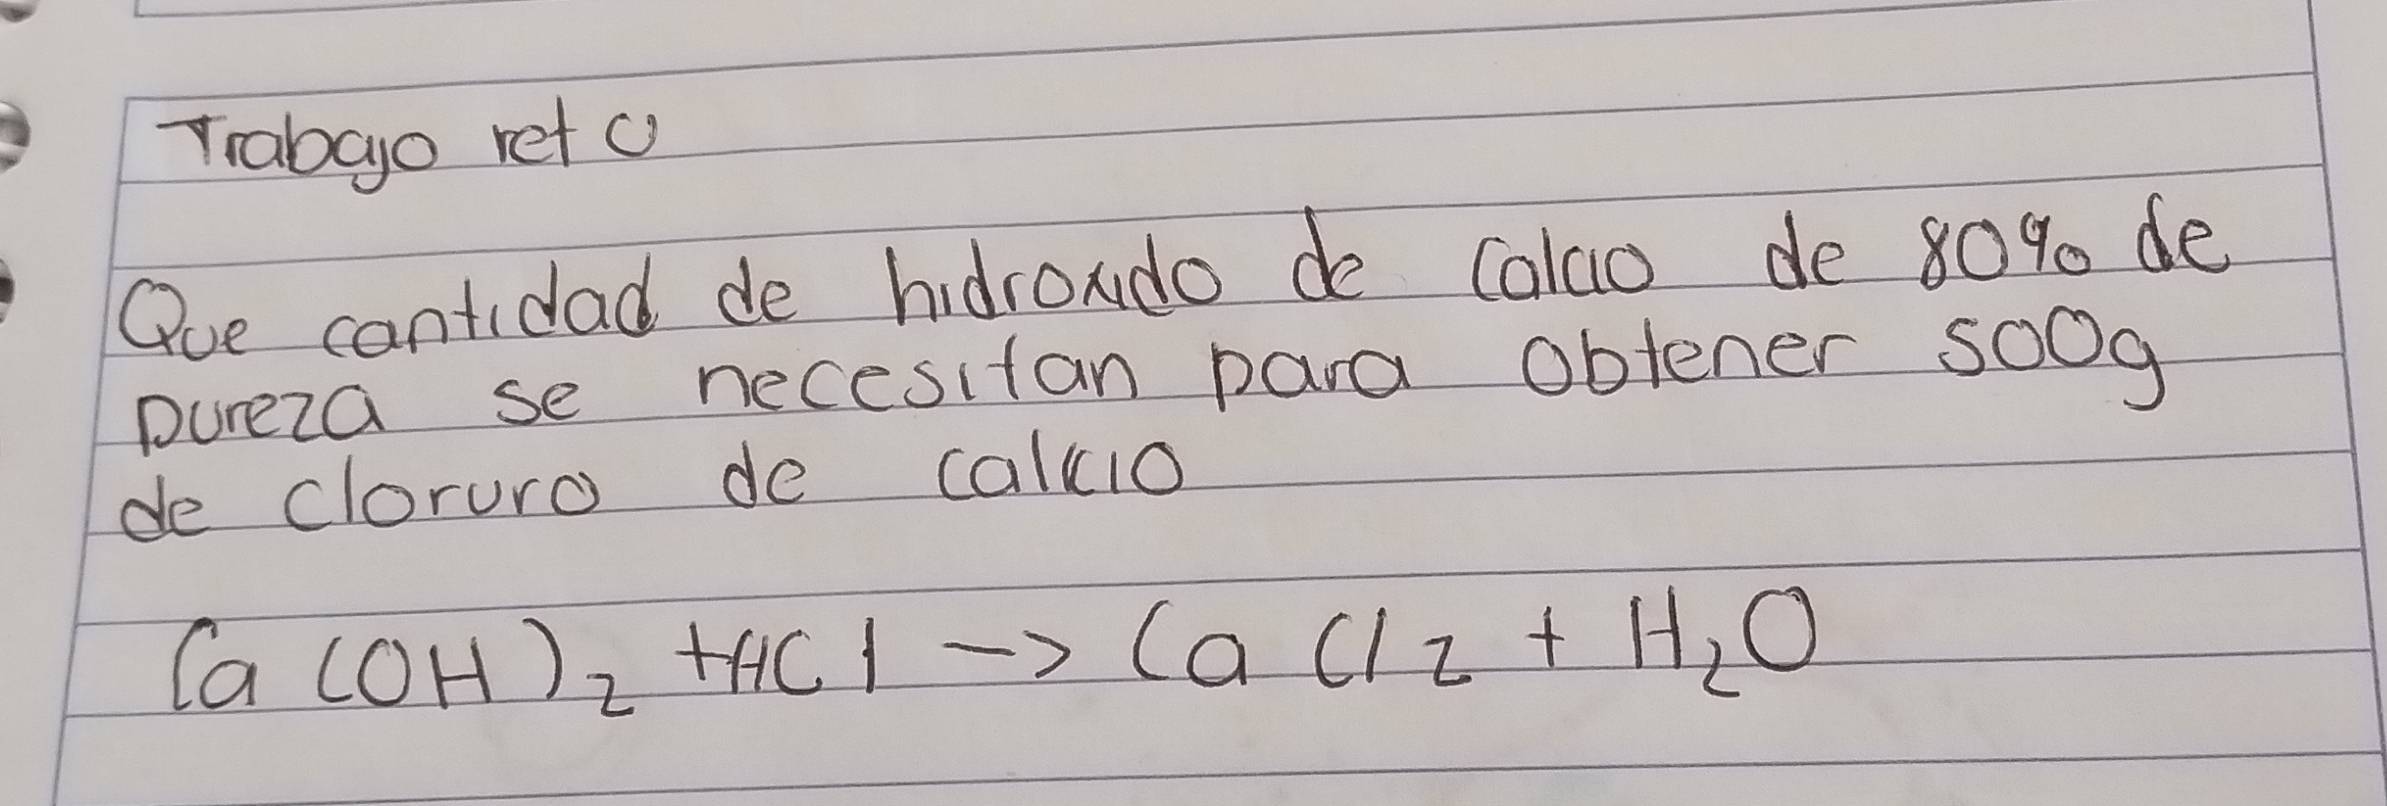 Trabajo reto
Que cantidad de hidroxido de calcio de 80% de
pureza se necesitan para obtener 500g
de cloruro de calcio
Ca(OH)₂ + HCl -> CaCl₂ + H₂O